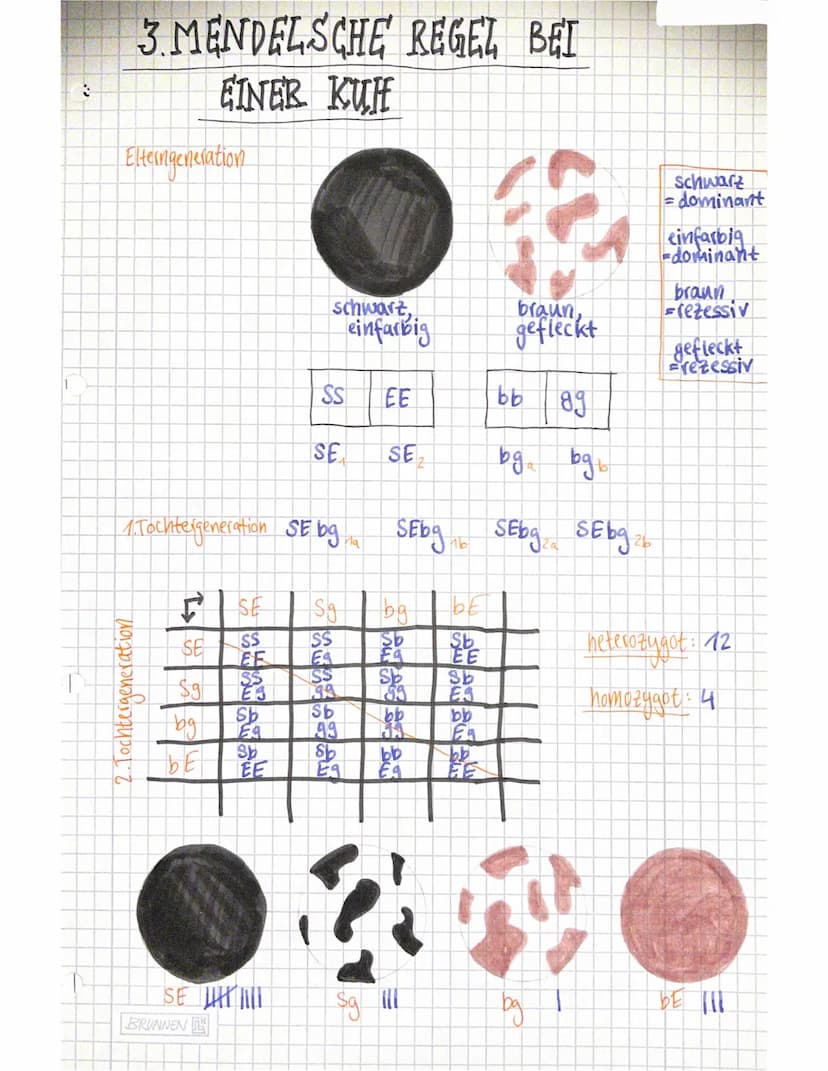 3. MENDELSCHE REGEL BEI
EINER KUH
Elterngeneration
schwarz,
einfarbig
braun,
gefleckt
schwarz
= dominant
einfarbig
=dominant
braun
=rezessiv
gefleckt
=rezessiv
SS EE bb gg
SE1 SE2 bga bgb
1.Tochtergeneration SEbg1a SEbg1b SEbg2a SEbg2b
2.Tochtergeneration
SE Sg bg bE
SE SS SS Sb Sb
EE Eg Eg EE
Sg SS SS Sb Sb
Eg gg gg Eg
bg Sb Sb bb bb
Eg gg gg Eg
bE Sb Sb bb bb
EE Eg Eg EE
heterozygot: 12
homozygot: 4
SE Sg bg bE
BRUNNEN